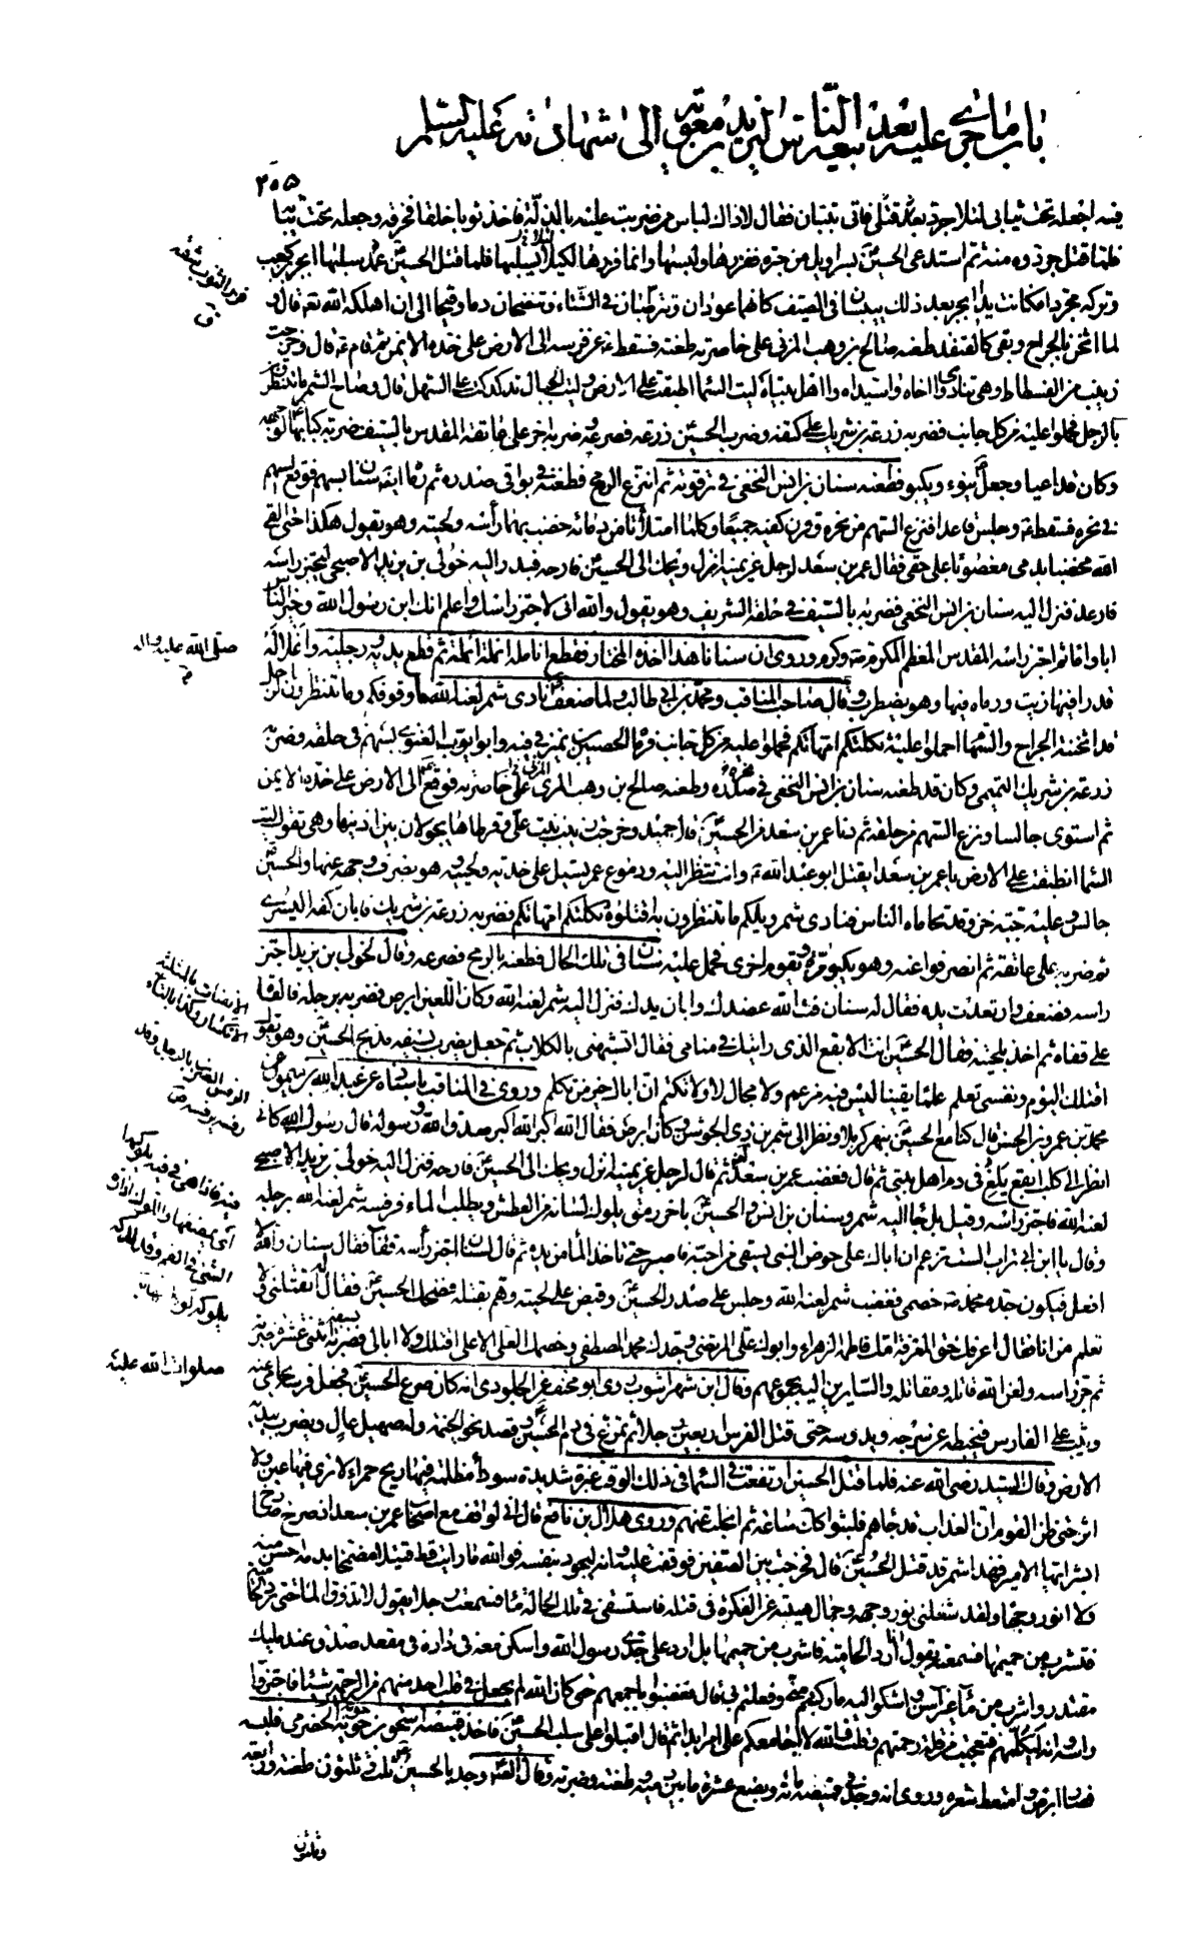 باب ماجرى عليه بعد بيعة الناس ليزيد بن معوية الى شهادته عليه السلم
٢٠٥
فيه اجعله تحت ثيابى لئلا اجرد بعد قتلى فاتى بتبان فقال لا ذاك لباس من ضربت عليه بالذلة فاخذ ثوبا خلقا فخرقه وجعله تحت ثيابه
فلما قتل جردوه منه ثم استدعى الحسين بسراويل من حبرة ففزرها ولبسها وانما فزرها لكيلا يسلبها فلما قتل الحسين عمد سلبها ابجر بن كعب
وتركه مجردا فكانت يدا ابجر بعد ذلك ييبسان فى الصيف كانهما عودان وتترطبان فى الشتاء وتنضحان دما وقيحا الى ان اهلكه الله تعه قال و
لما اثخن بالجراح وبقى كالقنفذ طعنه صالح بن وهب المزنى على خاصرته طعنة فسقط عن فرسه الى الارض على خده الايمن ثم قام قال وخرجت
زينب من الفسطاط وهى تنادى وااخاه واسيداه وااهل بيتاه ليت السماء اطبقت على الارض وليت الجبال تدكدكت على السهل قال وصاح الشمر ما تنتظرون
بالرجل فحملوا عليه من كل جانب فضربه زرعة بن شريك على كتفه وضرب الحسين زرعة فصرعه وضربه اخر على عاتقه المقدس بالسيف ضربة كبا بها لوجهه
وكان قد اعيا وجعل ينوء ويكبو فطعنه سنان بن انس النخعى فى ترقوته ثم انتزع الرمح فطعنه فى بوانى صدره ثم رماه ايضا سنان بسهم فوقع السهم
فى نحره فسقط وجلس قاعدا فنزع السهم من نحره وقرن كفيه جميعا وكلما امتلأتا من دمائه خضب بهما رأسه ولحيته وهو يقول هكذا حتى القى
الله مخضبا بدمى مغصوبا على حقى فقال عمر بن سعد لرجل عن يمينه انزل ويحك الى الحسين فارحه فبدر اليه خولى بن يزيد الاصبحى ليجتز راسه
فارعد فنزل اليه سنان بن انس النخعى فضربه بالسيف فى حلقه الشريف وهو يقول والله انى لاجتز راسك واعلم انك ابن رسول الله وخير الناس
ابا واما ثم اجتز راسه المقدس المعظم المكرم وروى ان سنانا هذا اخذه المختار فقطع انامله انملة انملة ثم قطع يديه ورجليه واغلا له
قدرا فيها زيت ورماه فيها وهو يضطرب وقال صاحب المناقب ومحمد بن ابى طالب ولما ضعف نادى شمر لعنه الله ما وقوفكم وما تنتظرون بالرجل
قد اثخنته الجراح والسهام احملوا عليه ثكلتكم امهاتكم فحملوا عليه من كل جانب فرماه الحصين بن تميم فى فيه وابو ايوب الغنوى بسهم فى حلقه وضربه
زرعة بن شريك التميمى وكان قد طعنه سنان بن انس النخعى فى صدره وطعنه صالح بن وهب المزنى على خاصرته فوقع الى الارض على خده الايمن
ثم استوى جالسا ونزع السهم من حلقه ثم دنا عمر بن سعد من الحسين قال حميد وخرجت زينب بنت على وقرطاها يجولان بين اذنيها وهى تقول ليت
السماء انطبقت على الارض يا عمر بن سعد ايقتل ابو عبد الله وانت تنظر اليه ودموع عمر تسيل على خديه ولحيته وهو يصرف وجهه عنها والحسين
جالس وعليه جبة خز وقد تحاماه الناس فنادى شمر ويلكم ما تنتظرون به اقتلوه ثكلتكم امهاتكم فضربه زرعة بن شريك فابان كفه اليسرى
ثم ضربه على عاتقه ثم انصرفوا عنه وهو يكبو مرة ويقوم اخرى فحمل عليه سنان فى تلك الحال فطعنه بالرمح فصرعه وقال لخولى بن يزيد اجتز
راسه فضعف وارتعدت يده فقال له سنان فت الله عضدك وابان يدك فنزل اليه شمر لعنه الله وكان اللعين ابرص فضربه برجله فالقاه
على قفاه ثم اخذ بلحيته فقال الحسين انت الابقع الذى رايتك فى منامى فقال اتشبهنى بالكلاب ثم جعل يضرب بسيفه مذبح الحسين وهو يقول
اقتلك اليوم ونفسى تعلم علما يقينا ليس فيه مزعم ولا مجال لا ولا تكتم ان اباك خير من تكلم وروى فى المناقب باسناده عن عبد الله بن ميمون عن
محمد بن عمرو بن الحسن قال كنا مع الحسين بنهر كربلا ونظر الى شمر بن ذى الجوشن وكان ابرص فقال الله اكبر الله اكبر صدق الله ورسوله قال رسول الله كانى
انظر الى كلب ابقع يلغ فى دم اهل بيتى ثم قال فغضب عمر بن سعد ثم قال لرجل عن يمينه انزل ويحك الى الحسين فارحه فنزل اليه خولى بن يزيد الاصبحى
لعنه الله فاجتز راسه وقيل بل جاء اليه شمر وسنان بن انس والحسين باخر رمق يلوك لسانه من العطش ويطلب الماء فرفسه شمر لعنه الله برجله
وقال يا ابن ابى تراب الست تزعم ان اباك على حوض النبى يسقى من احبه فاصبر حتى تاخذ الماء من يده ثم قال لسنان اجتز رأسه قفاء فقال سنان والله لا
افعل فيكون جده محمد خصمى فغضب شمر لعنه الله وجلس على صدر الحسين وقبض على لحيته وهم بقتله فضحك الحسين فقال له اتقتلنى ولا
تعلم من انا فقال اعرفك حق المعرفة امك فاطمة الزهراء وابوك على المرتضى وجدك محمد المصطفى وخصمك العلى الاعلى اقتلك ولا ابالى فضربه بسيفه اثنى عشرة ضربة
ثم جز راسه ولعن الله قاتله ومقاتله والسايرين اليه بجموعهم وقال ابن شهراشوب روى ابو مخنف عن الجلودى انه كان صرع الحسين فجعل فرسه يحامى عنه
ويثب على الفارس فيخبطه عن سرجه ويدوسه حتى قتل الفرس اربعين رجلا ثم تمرغ فى دم الحسين وقصد نحو الخيمة وله صهيل عال ويضرب بيديه
الارض وقال السيد رضى الله عنه فلما قتل الحسين ارتفعت فى السماء فى ذلك الوقت غبرة شديدة سوداء مظلمة فيها ريح حمراء لا ترى فيها عين ولا
اثر حتى ظن القوم ان العذاب قد جاءهم فلبثوا كك ساعة ثم انجلت عنهم وروى هلال بن نافع قال انى لواقف مع اصحاب عمر بن سعد اذ صرخ صارخ
ابشر ايها الامير فهذا شمر قد قتل الحسين قال فخرجت بين الصفين فوقفت عليه وانه ليجود بنفسه فوالله ما رايت قط قتيلا مضمخا بدمه احسن منه
ولا انور وجها ولقد شغلنى نور وجهه وجمال هيبته عن الفكرة فى قتله فاستسقى فى تلك الحالة ماء فسمعت رجلا يقول لا تذوق الماء حتى ترد الحامية
فتشرب من حميمها فسمعته يقول انا ارد الحامية فاشرب من حميمها بل ارد على جدى رسول الله واسكن معه فى داره فى مقعد صدق عند مليك
مقتدر واشرب من ماء غير آسن واشكو اليه ما ركبتم منى وفعلتم بى قال فغضبوا باجمعهم حتى كان الله لم يجعل فى قلب احد منهم من الرحمة شيئا فاجتزوا
راسه وانه ليكلمهم فتعجبت من قلة رحمتهم وقلت والله لا اجامعكم على امر ابدا ثم قال اقبلوا على سلب الحسين فاخذ قميصه اسحق بن حوية الحضرمى فلبسه
فصار ابرص وامتعط شعره وروى انه وجد فى قميصه مائة وبضع عشرة ما بين رمية وطعنة وضربة وقال الصادق وجد بالحسين ثلث وثلثون طعنة واربعة
وثلثون
فزر الثوب شقه
ق
صلى الله عليه واله
الرفس الضرب بالرجل وقد
رفسه يرفسه ص
صلوات الله عليه